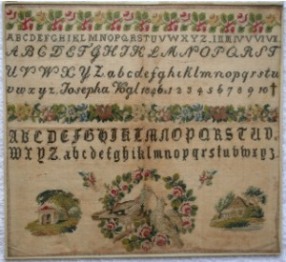 ABCDEFGHIKLMNOPQRSTUVWXYZ. I II III IV V VI VII.
ABCDEFGHIKLMNOPQRST
UVWXYZ abcdefghiklmnopqrstu
vwxyz. Josepha Vogl 1846. 1 2 3 4 5 6 7 8 9 10 †
ABCDEFGHIKLMNOPQRSTUV
WXYZ abcdefghiklmnopqrstuvwxyz